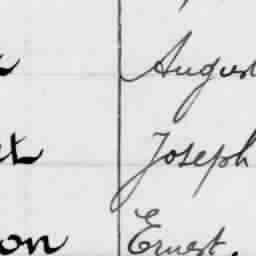 August
Joseph
on Ernest.